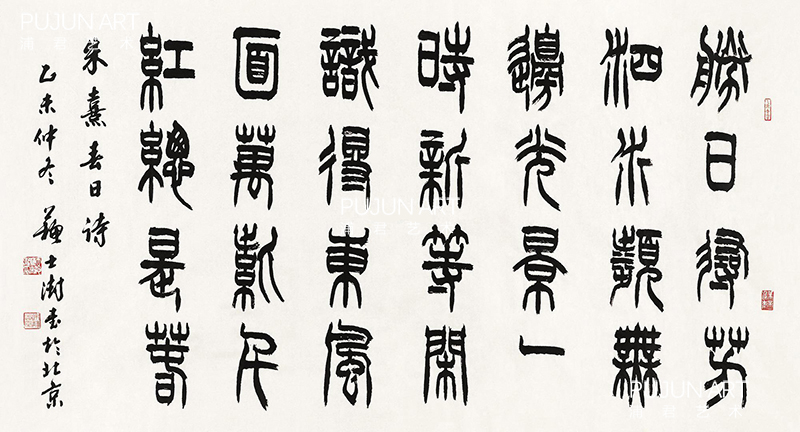 勝日尋芳
泗水瀕無
邊光景一
時新等閑
識得東風
面萬紫千
紅總是春
朱熹春日詩
乙未仲冬 蘇士澍書於北京
PUJUN ART
浦君艺术
PUJUN ART
浦君艺术
PUJUN ART
浦君艺术